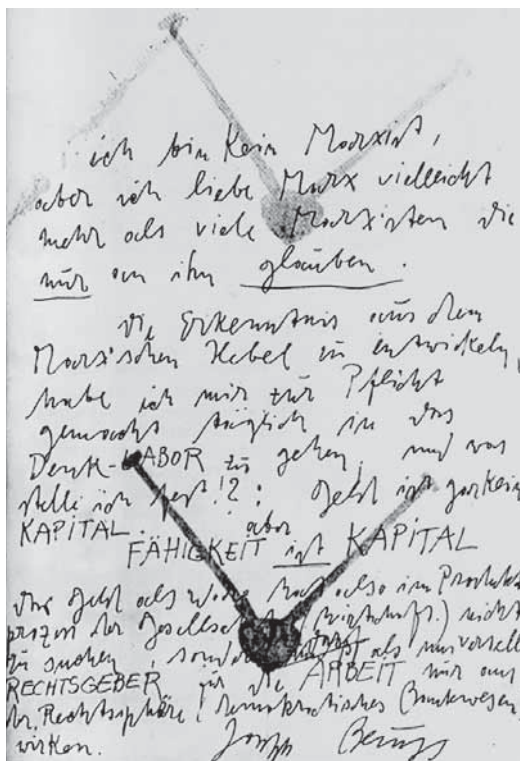 ich bin Kein Marxist,
aber ich liebe Marx vielleicht
mehr als viele Marxisten die
nur an ihn glauben.
Die Erkenntnis aus dem
Marx'schen Hebel zu entwickeln,
habe ich mir zur Pflicht
gemacht täglich in das
Denk-LABOR zu gehen, und was
stelle ich fest!?: Geld ist garkein
KAPITAL. aber
FÄHIGKEIT ist KAPITAL
Das Geld als Ware hat also im
prozess der Gesellschaft (Wirtschaft.) nichts
zu suchen, sondern als
RECHTSGEBER für die ARBEIT nur aus
der Rechtssphäre (demokratisches Bankwesen
wirken. Joseph Beuys